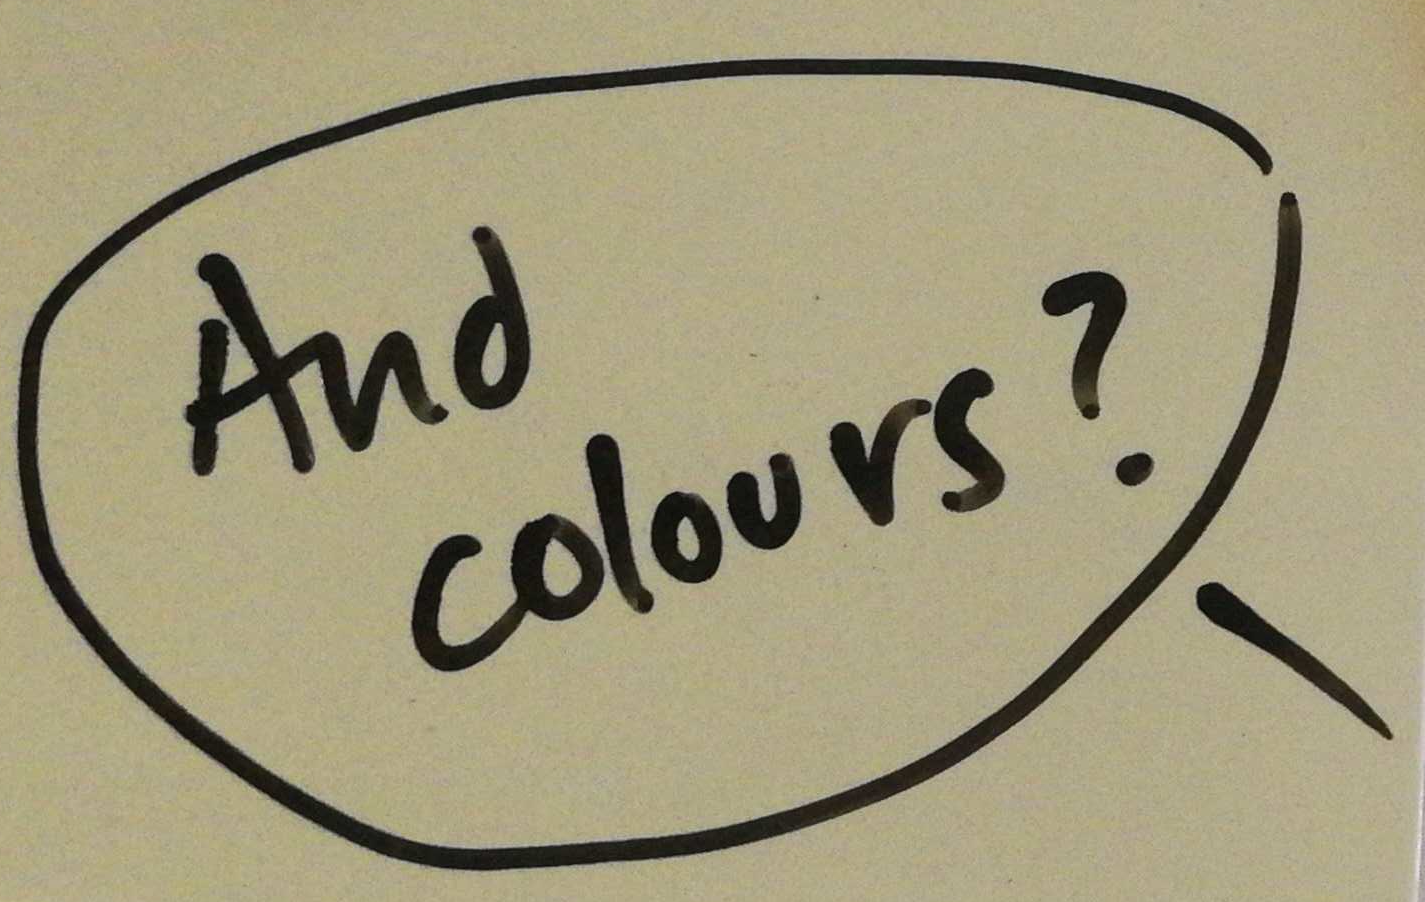 And
colours?